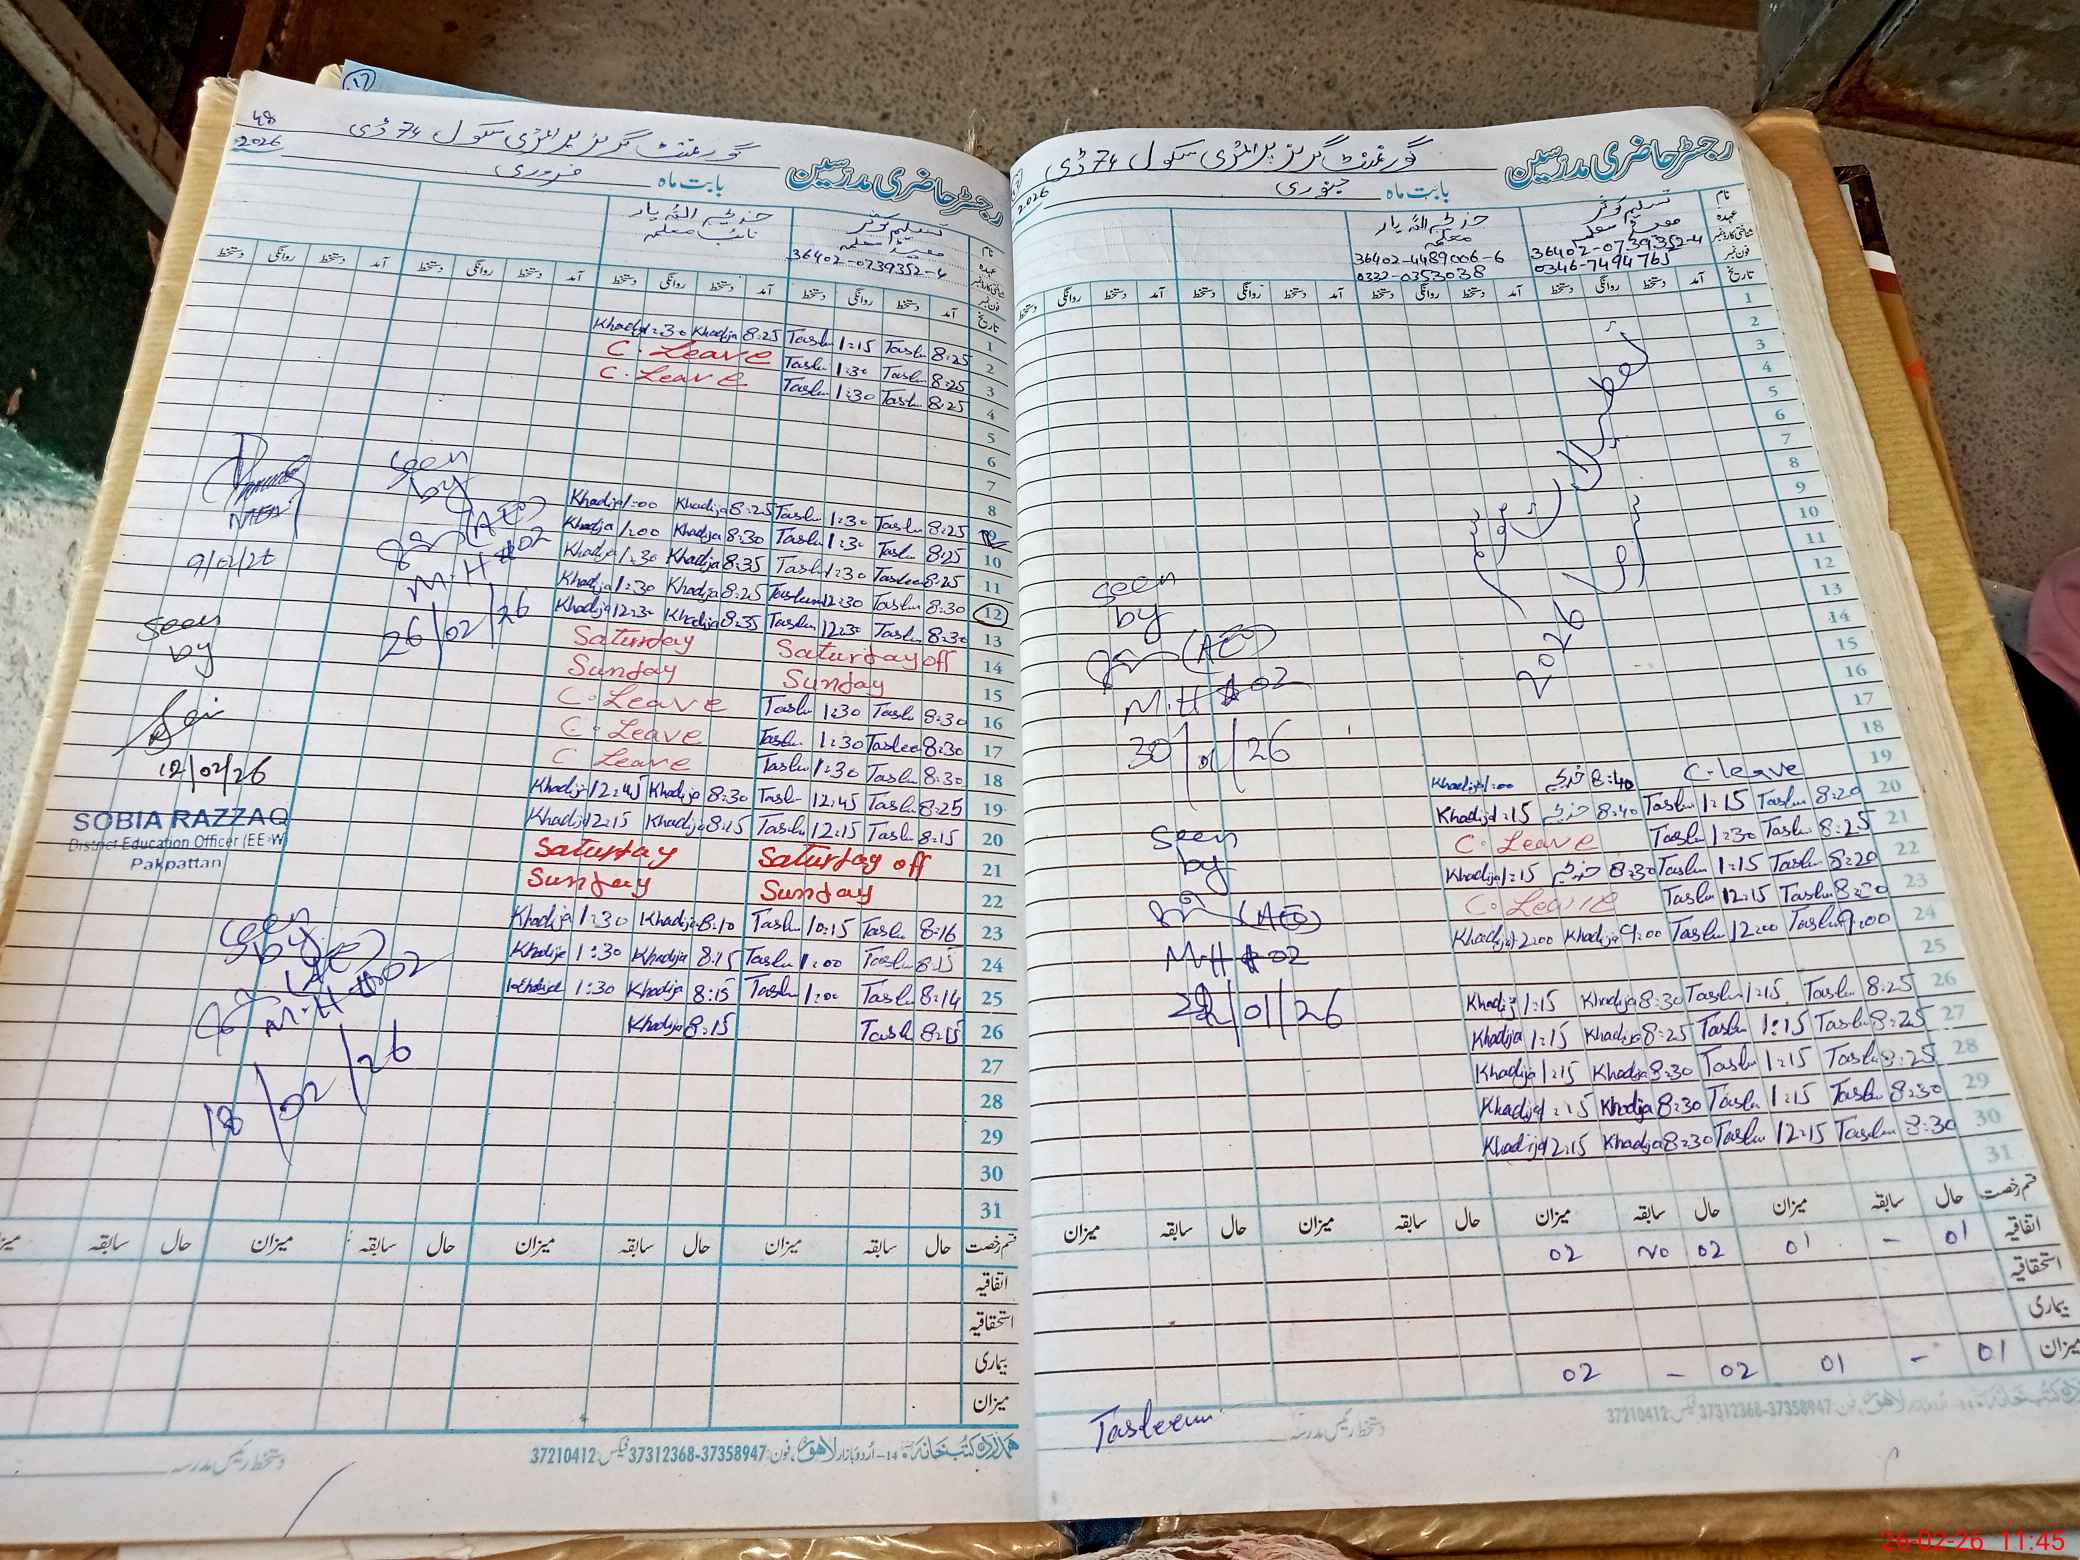 رجسٹر حاضری مدرسین
گورنمنٹ گرلز پرائمری سکول 74 ڈی
بابت ماہ جنوری 2026
نام تسلیم کوثر خدیجہ اللہ یار
عہدہ معلمہ
شناختی کارڈ نمبر 36402-0739352-4 36402-4489006-6
فون نمبر 0346-7494765 0332-0353038
تاریخ آمد دستخط روانگی دستخط آمد دستخط روانگی دستخط آمد دستخط روانگی دستخط آمد دستخط روانگی دستخط
1
2
3
4
5
6
7
8
9
10
11
12
13
14
15
16
17
18
موسم سرما
2026
19 C. leave 8:40 خدیجہ 1:00 Khadija
20 8:20 Taslu 1:15 Taslu 8:40 خدیجہ 1:15 Khadija
21 8:25 Taslu 1:30 Taslu C. Leave
22 8:20 Taslu 1:15 Taslu 8:30 خدیجہ 1:15 Khadija
23 8:20 Taslu 12:15 Taslu C. Leave
24 9:00 Taslu 12:00 Taslu 9:00 Khadija 12:00 Khadija
25
26 8:25 Taslu 1:15 Taslu 8:30 Khadija 1:15 Khadija
27 8:25 Taslu 1:15 Taslu 8:25 Khadija 1:15 Khadija
28 8:25 Taslu 1:15 Taslu 8:30 Khadija 1:15 Khadija
29 8:30 Taslu 1:15 Taslu 8:30 Khadija 1:15 Khadija
30 8:30 Taslu 12:15 Taslu 8:30 Khadija 12:15 Khadija
31
seen
by
(AEO)
M.H # 02
30/01/26
Seen
by
(AEO)
M.H # 02
22/01/26
قسم رخصت حال سابقہ میزان حال سابقہ میزان حال سابقہ میزان حال سابقہ میزان
اتفاقیہ 01 - 01 02 No 02
استحقاقیہ
بیماری
میزان 01 - 01 02 - 02
Tasleem
دستخط رئیس مدرسہ
37210412 فیکس: 37312368-37358947
رجسٹر حاضری مدرسین
گورنمنٹ گرلز پرائمری سکول 74 ڈی
48
بابت ماہ فروری 2026
نام تسلیم کوثر خدیجہ اللہ یار
عہدہ معلمہ نائب معلمہ
شناختی کارڈ نمبر 36402-0739352-4
فون نمبر
تاریخ آمد دستخط روانگی دستخط آمد دستخط روانگی دستخط آمد دستخط روانگی دستخط آمد دستخط روانگی دستخط
1
2 8:25 Taslu 1:15 Taslu 8:25 Khadija 1:30 Khadija
3 8:25 Taslu 1:30 Taslu C. Leave
4 8:25 Taslu 1:30 Taslu C. Leave
5
6
7
8
9 8:25 Taslu 1:30 Taslu 8:25 Khadija 1:00 Khadija
10 8:25 Taslu 1:30 Taslu 8:30 Khadija 1:00 Khadija
11 8:25 Taslee 1:30 Taslu 8:35 Khadija 1:30 Khadija
12 8:30 Taslu 12:30 Tasleem 8:25 Khadija 1:30 Khadija
13 8:30 Taslu 12:30 Taslu 8:35 Khadija 12:30 Khadija
14 Saturday off Saturday
15 Sunday Sunday
16 8:30 Taslu 1:30 Taslu C. Leave
17 8:30 Taslee 1:30 Taslu C. Leave
18 8:30 Taslu 1:30 Taslu C Leave
19 8:25 Taslu 12:45 Taslu 8:30 Khadija 12:45 Khadija
20 8:15 Taslu 12:15 Taslu 8:15 Khadija 12:15 Khadija
21 Saturday off Saturday
22 Sunday Sunday
23 8:16 Taslu 10:15 Taslu 8:10 Khadija 1:30 Khadija
24 8:15 Taslu 1:00 Taslu 8:15 Khadija 1:30 Khadije
25 8:14 Taslu 1:00 Taslu 8:15 Khadija 1:30 Khadija
26 8:15 Taslu 8:15 Khadija
27
28
29
30
31
9/02/26
seen
by
(AEO)
M.H # 02
26/02/26
Seen
by
12/02/26
SOBIA RAZZAQ
District Education Officer (EE-W)
Pakpattan
seen
by
(AEO)
M.H # 02
18/02/26
قسم رخصت حال سابقہ میزان حال سابقہ میزان حال سابقہ میزان حال سابقہ میزان
اتفاقیہ
استحقاقیہ
بیماری
میزان
ہمدرد کتب خانہ 14-اردو بازار لاہور، فون: 37312368-37358947 فیکس: 37210412
دستخط رئیس مدرسہ
17
26-02-26 11:45